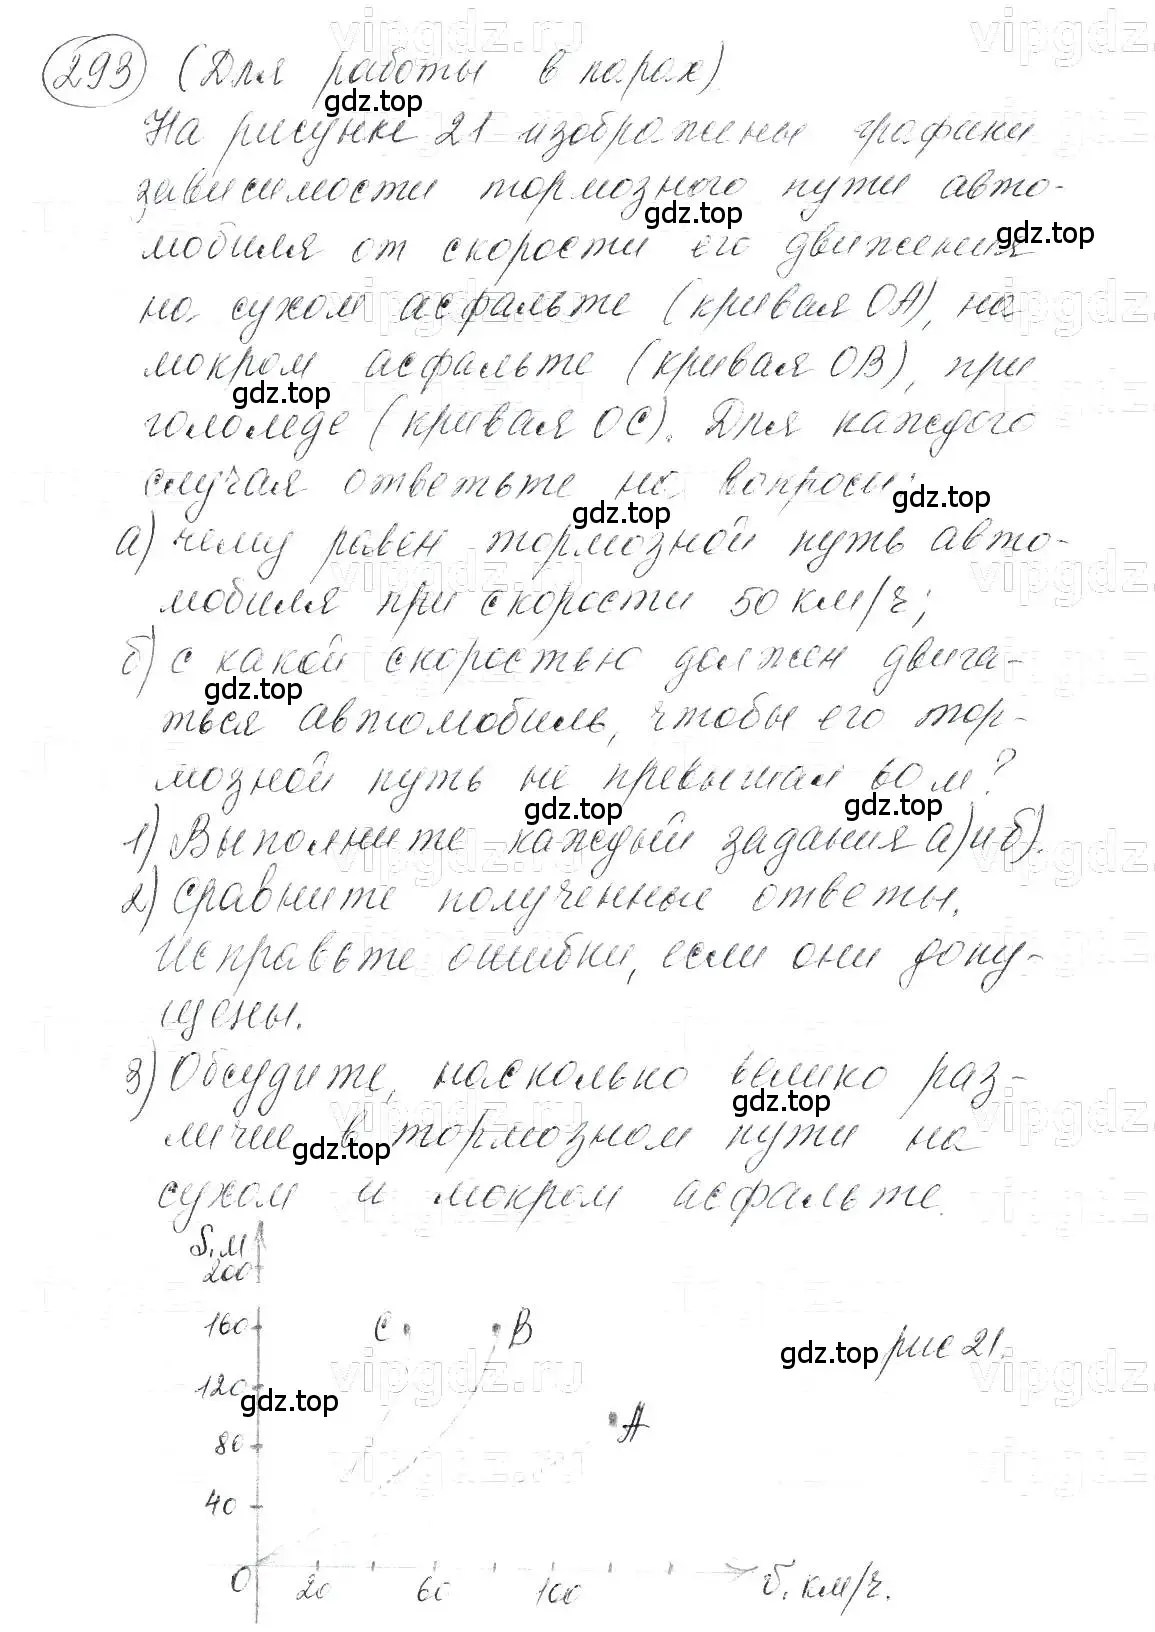 293 (Для работы в парах)
На рисунке 21 изображены графики
зависимости тормозного пути авто-
мобиля от скорости его движения
на сухом асфальте (кривая ОА), на
мокром асфальте (кривая ОВ), при
гололеде (кривая ОС). Для каждого
случая ответьте на вопросы:
а) чему равен тормозной путь авто-
мобиля при скорости 50 км/ч;
б) с какой скоростью должен двига-
ться автомобиль, чтобы его тор-
мозной путь не превышал 60 м?
1) Выполните каждый задания а) и б).
2) Сравните полученные ответы.
Исправьте ошибки, если они допу-
щены.
3) Обсудите, насколько велико раз-
личие в тормозном пути на
сухом и мокром асфальте.
S, м
200
160 C B
рис 21.
120
A
80
40
0 20 60 100 v, км/ч.
gdz.top
vipgdz.ru